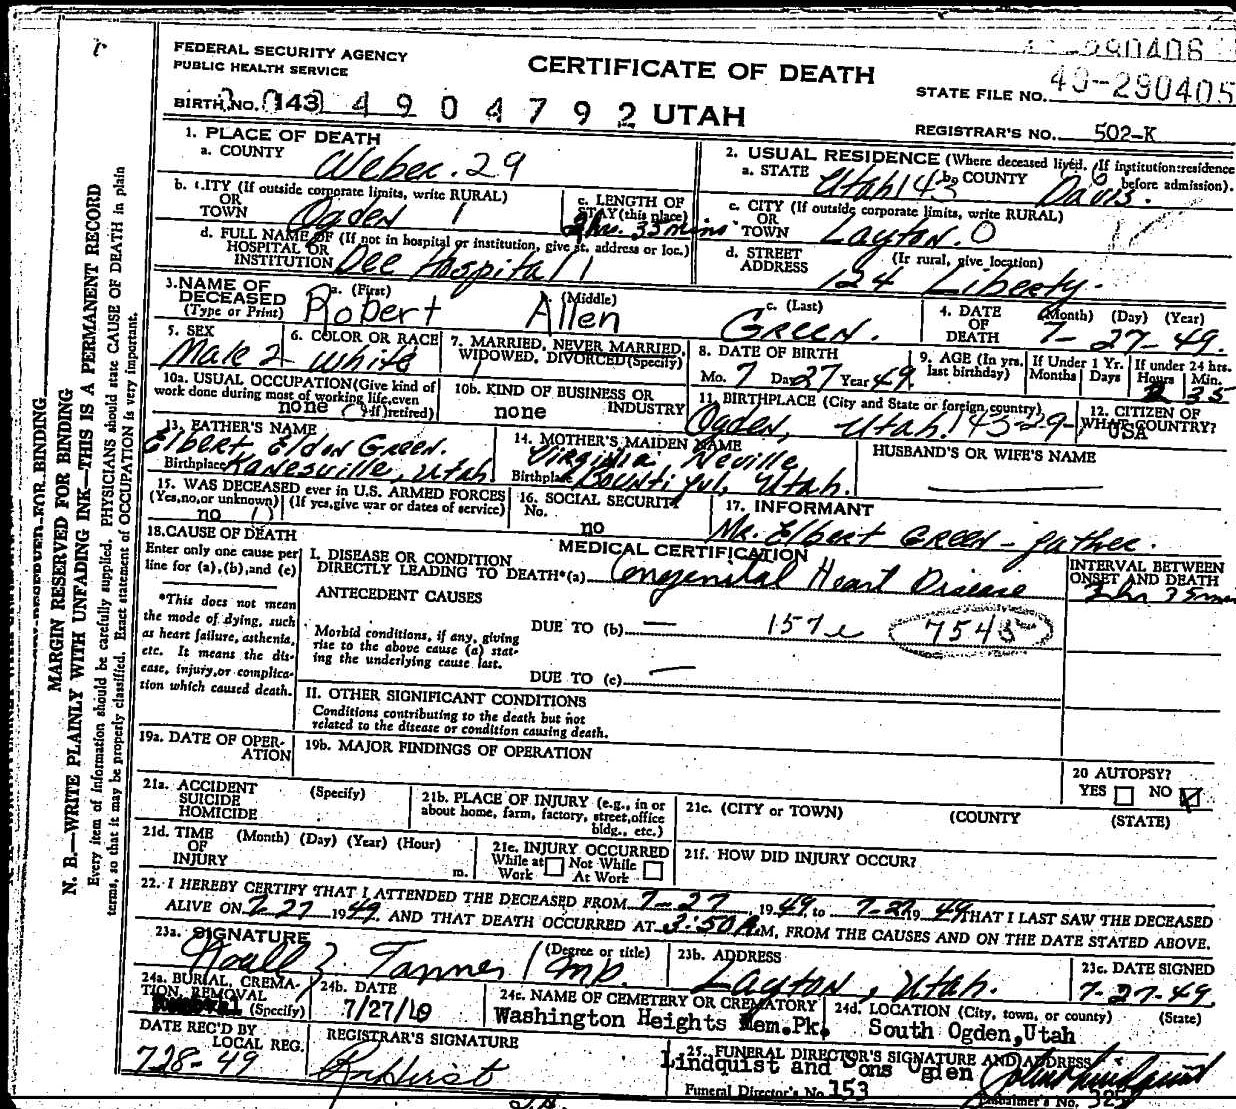 FEDERAL SECURITY AGENCY
PUBLIC HEALTH SERVICE
CERTIFICATE OF DEATH
290406
STATE FILE NO. 49-290405
BIRTH NO. 143 4904792 UTAH
REGISTRAR'S NO. 502-K
1. PLACE OF DEATH
a. COUNTY Weber. 29
2. USUAL RESIDENCE (Where deceased lived. If institution: residence before admission).
a. STATE Utah 143 b. COUNTY Davis. 6
b. CITY (If outside corporate limits, write RURAL)
OR
TOWN Ogden 1
c. LENGTH OF
STAY (this place)
2 hrs. 35 mins
c. CITY (If outside corporate limits, write RURAL)
OR
TOWN Layton. 0
d. FULL NAME OF (If not in hospital or institution, give st. address or loc.)
HOSPITAL OR
INSTITUTION Dee Hospital 1
d. STREET (If rural, give location)
ADDRESS 124 Liberty.
3. NAME OF
DECEASED
(Type or Print)
a. (First) Robert
b. (Middle) Allen
c. (Last) Green.
4. DATE OF DEATH (Month) (Day) (Year)
7-27-49.
5. SEX
Male 2
6. COLOR OR RACE
White
7. MARRIED, NEVER MARRIED,
WIDOWED, DIVORCED (Specify)
1
8. DATE OF BIRTH
Mo. 7 Da 27 Year 49
9. AGE (In yrs. last birthday)
If Under 1 Yr.
Months Days
If under 24 hrs.
Hours Min.
2 35
10a. USUAL OCCUPATION (Give kind of
work done during most of working life, even
if retired)
none
10b. KIND OF BUSINESS OR
INDUSTRY
none
11. BIRTHPLACE (City and State or foreign country)
Ogden, Utah. 143-29-1
12. CITIZEN OF
WHAT COUNTRY?
USA
13. FATHER'S NAME
Elbert Eldon Green.
Birthplace Kanesville, Utah
14. MOTHER'S MAIDEN NAME
Virginia Neville
Birthplace Bountiful, Utah.
HUSBAND'S OR WIFE'S NAME
15. WAS DECEASED ever in U.S. ARMED FORCES
(Yes, no, or unknown) (If yes, give war or dates of service)
no
16. SOCIAL SECURITY
No.
no
17. INFORMANT
Mr. Elbert Green - father.
18. CAUSE OF DEATH
Enter only one cause per
line for (a), (b), and (c)
MEDICAL CERTIFICATION
I. DISEASE OR CONDITION
DIRECTLY LEADING TO DEATH*(a) Congenital Heart Disease
INTERVAL BETWEEN
ONSET AND DEATH
2 hr 35 min
*This does not mean
the mode of dying, such
as heart failure, asthenia,
etc. It means the dis-
ease, injury, or complica-
tion which caused death.
ANTECEDENT CAUSES
Morbid conditions, if any, giving
rise to the above cause (a) stat-
ing the underlying cause last.
DUE TO (b) — 157e 7545
DUE TO (c) —
II. OTHER SIGNIFICANT CONDITIONS
Conditions contributing to the death but not
related to the disease or condition causing death.
19a. DATE OF OPER-
ATION
19b. MAJOR FINDINGS OF OPERATION
20 AUTOPSY?
YES NO
21a. ACCIDENT (Specify)
SUICIDE
HOMICIDE
21b. PLACE OF INJURY (e.g., in or
about home, farm, factory, street, office
bldg., etc.)
21c. (CITY or TOWN) (COUNTY (STATE)
21d. TIME (Month) (Day) (Year) (Hour)
OF
INJURY m.
21e. INJURY OCCURRED
While at Work
Not While At Work
21f. HOW DID INJURY OCCUR?
22. I HEREBY CERTIFY THAT I ATTENDED THE DECEASED FROM 7-27 1949 to 7-27 1949 THAT I LAST SAW THE DECEASED
ALIVE ON 7-27 1949 AND THAT DEATH OCCURRED AT 3:50 A.M, FROM THE CAUSES AND ON THE DATE STATED ABOVE.
23a. SIGNATURE (Degree or title)
Noall Z. Tanner MD.
23b. ADDRESS
Layton, Utah.
23c. DATE SIGNED
7-27-49.
24a. BURIAL, CREMA-
TION, REMOVAL
(Specify)
24b. DATE
7/27/
24c. NAME OF CEMETERY OR CREMATORY
Washington Heights Mem.Pk.
24d. LOCATION (City, town, or county) (State)
South Ogden, Utah
DATE REC'D BY
LOCAL REG.
7-28-49
REGISTRAR'S SIGNATURE
25. FUNERAL DIRECTOR'S SIGNATURE AND ADDRESS
Lindquist and Sons Ogden
Funeral Director's No 153
Embalmer's No. 325
MARGIN RESERVED FOR BINDING
N. B.—WRITE PLAINLY WITH UNFADING INK—THIS IS A PERMANENT RECORD
Every item of information should be carefully supplied. PHYSICIANS should state CAUSE OF DEATH in plain
terms, so that it may be properly classified. Exact statement of OCCUPATION is very important.